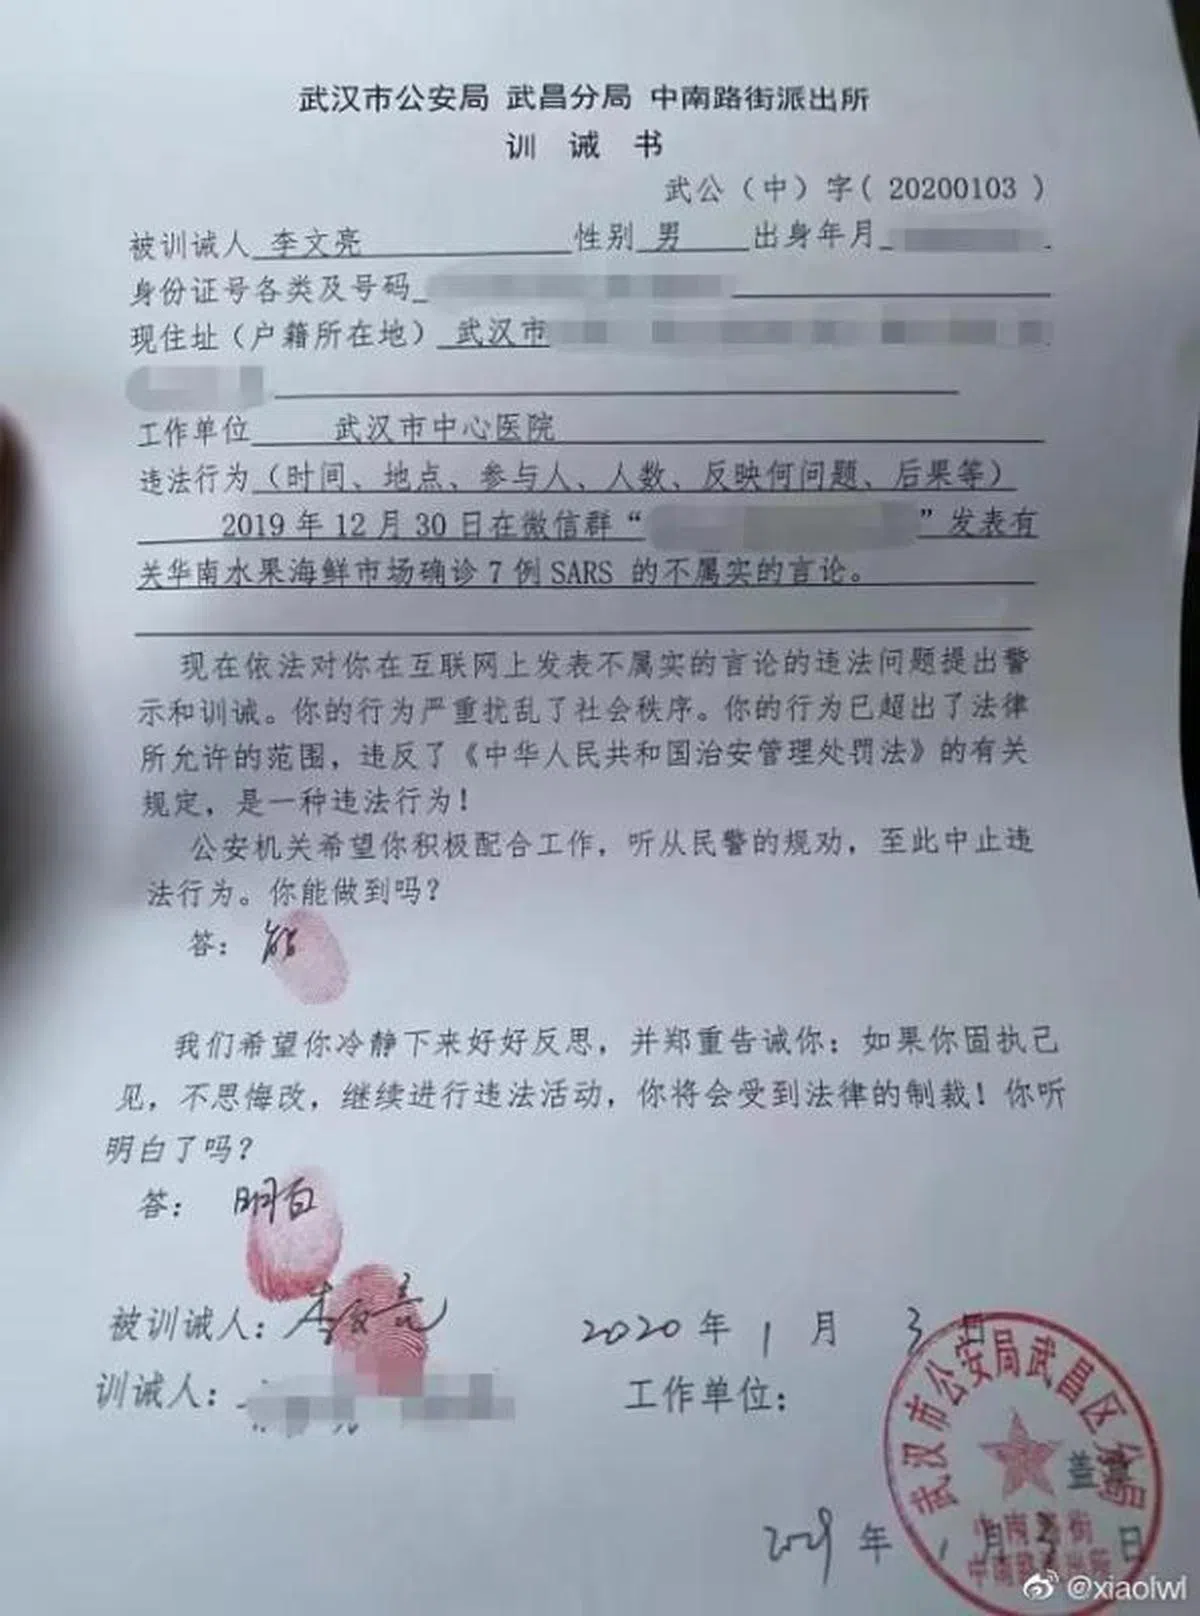 武汉市公安局 武昌分局 中南路街派出所
训 诫 书
武公（中）字( 20200103 )
被训诫人 李文亮 性别 男 出身年月
身份证号各类及号码
现住址（户籍所在地） 武汉市
工作单位 武汉市中心医院
违法行为（时间、地点、参与人、人数、反映何问题、后果等）
2019 年 12 月 30 日在微信群“ ”发表有
关华南水果海鲜市场确诊 7 例 SARS 的不属实的言论。
现在依法对你在互联网上发表不属实的言论的违法问题提出警
示和训诫。你的行为严重扰乱了社会秩序。你的行为已超出了法律
所允许的范围，违反了《中华人民共和国治安管理处罚法》的有关
规定，是一种违法行为！
公安机关希望你积极配合工作，听从民警的规劝，至此中止违
法行为。你能做到吗？
答： 能
我们希望你冷静下来好好反思，并郑重告诫你：如果你固执己
见，不思悔改，继续进行违法活动，你将会受到法律的制裁！你听
明白了吗？
答： 明白
被训诫人：李文亮 2020 年 1 月 3 日
训诫人： 工作单位：
武汉市公安局武昌区分局
盖
中南路街
中南路派出所
年 1 月 3 日
@xiaolwl